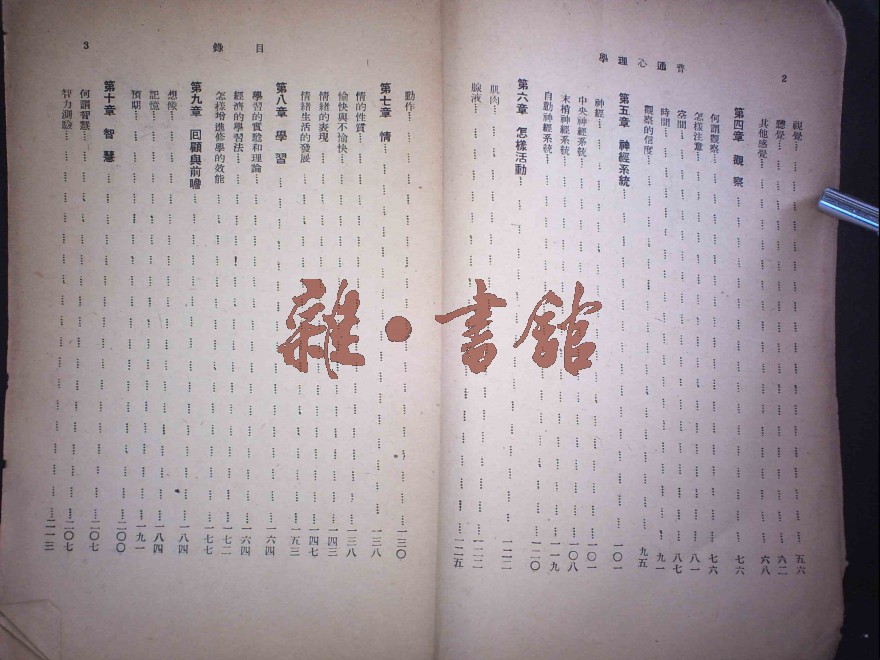 普通心理學
2
視覺……五六
聽覺……六二
其他感覺……六八
第四章 觀察……七六
何謂觀察……七六
怎樣注意……八一
空間……八七
時間……九一
觀察的信度……九五
第五章 神經系統……一〇一
神經……一〇一
中央神經系統……一〇八
末梢神經系統……一一九
自動神經系統……一二〇
第六章 怎樣活動……一二三
肌肉……一二三
腺液……一二五
目錄
3
動作……一三〇
第七章 情……一三八
情的性質……一三八
愉快與不愉快……一四三
情緒的表現……一四七
情緒生活的發展……一五三
第八章 學習……一六四
學習的實驗和理論……一六四
經濟的學習法……一七二
怎樣增進修學的效能……一七七
第九章 回顧與前瞻……一八四
想像……一八四
記憶……一九一
預期……二〇〇
第十章 智慧……二〇七
何謂智慧……二〇七
智力測驗……二一三
雜·書館